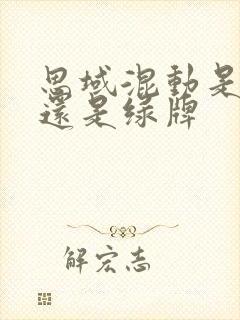 思域混動是
還是綠牌
解宏志